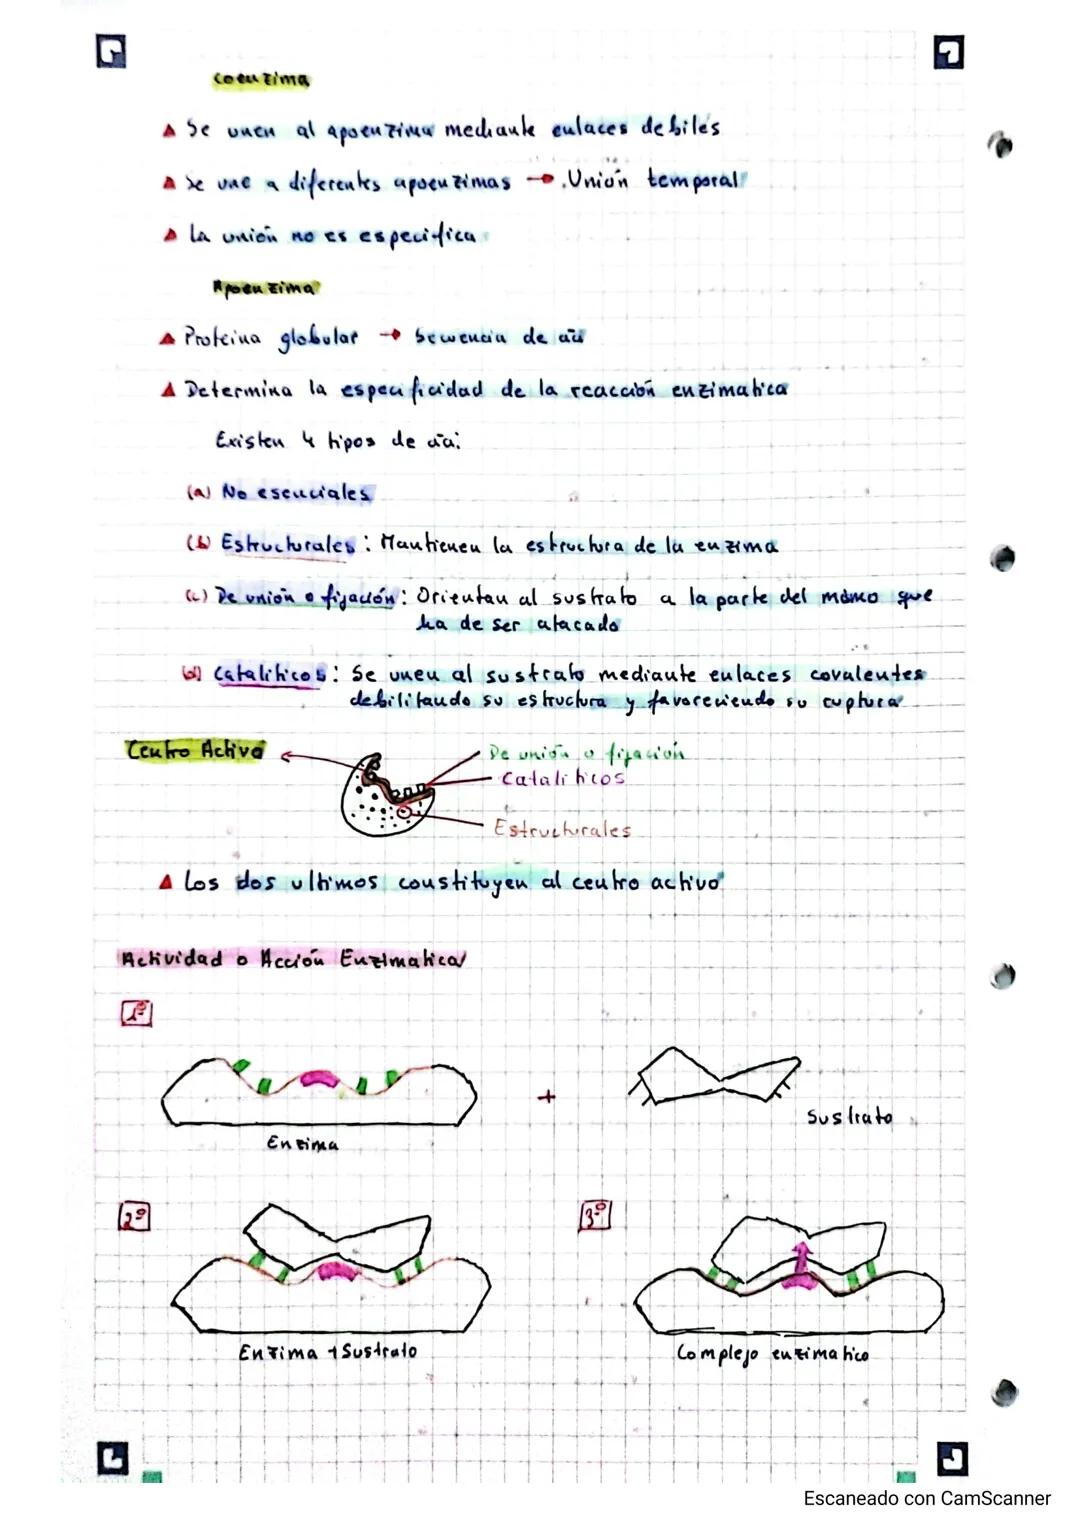 Coenzima
▲ Se unen al apoenzima mediante enlaces debiles
▲ Se une a diferentes apoenzimas → Unión temporal
▲ La unión no es especifica
Apoenzima
▲ Proteina globular → Secuencia de aa
▲ Determina la especificidad de la reacción enzimatica
Existen 4 tipos de aa:
(a) No esenciales
(b) Estructurales: Mantienen la estructura de la enzima
(c) De unión o fijación: Orientan al sustrato a la parte del mismo que
ha de ser atacado
(d) Cataliticos: Se unen al sustrato mediante enlaces covalentes
debilitando su estructura y favoreciendo su ruptura
Centro Activo
De unión o fijación
Cataliticos
Estructurales
▲ Los dos ultimos constituyen al centro activo
Actividad o Acción Enzimatica
1º
+
Enzima
Sustrato
2º
3º
Enzima + Sustrato
Complejo enzimatico
Escaneado con CamScanner